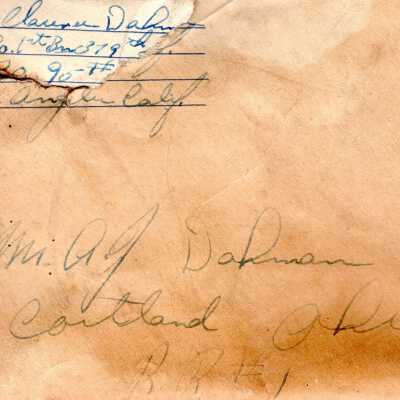 Clarence Dahm
Co. 1st Bn 379th
90-
Angeles Calif.
Mr. A J Dahman
Cortland Ohi
R. R #1